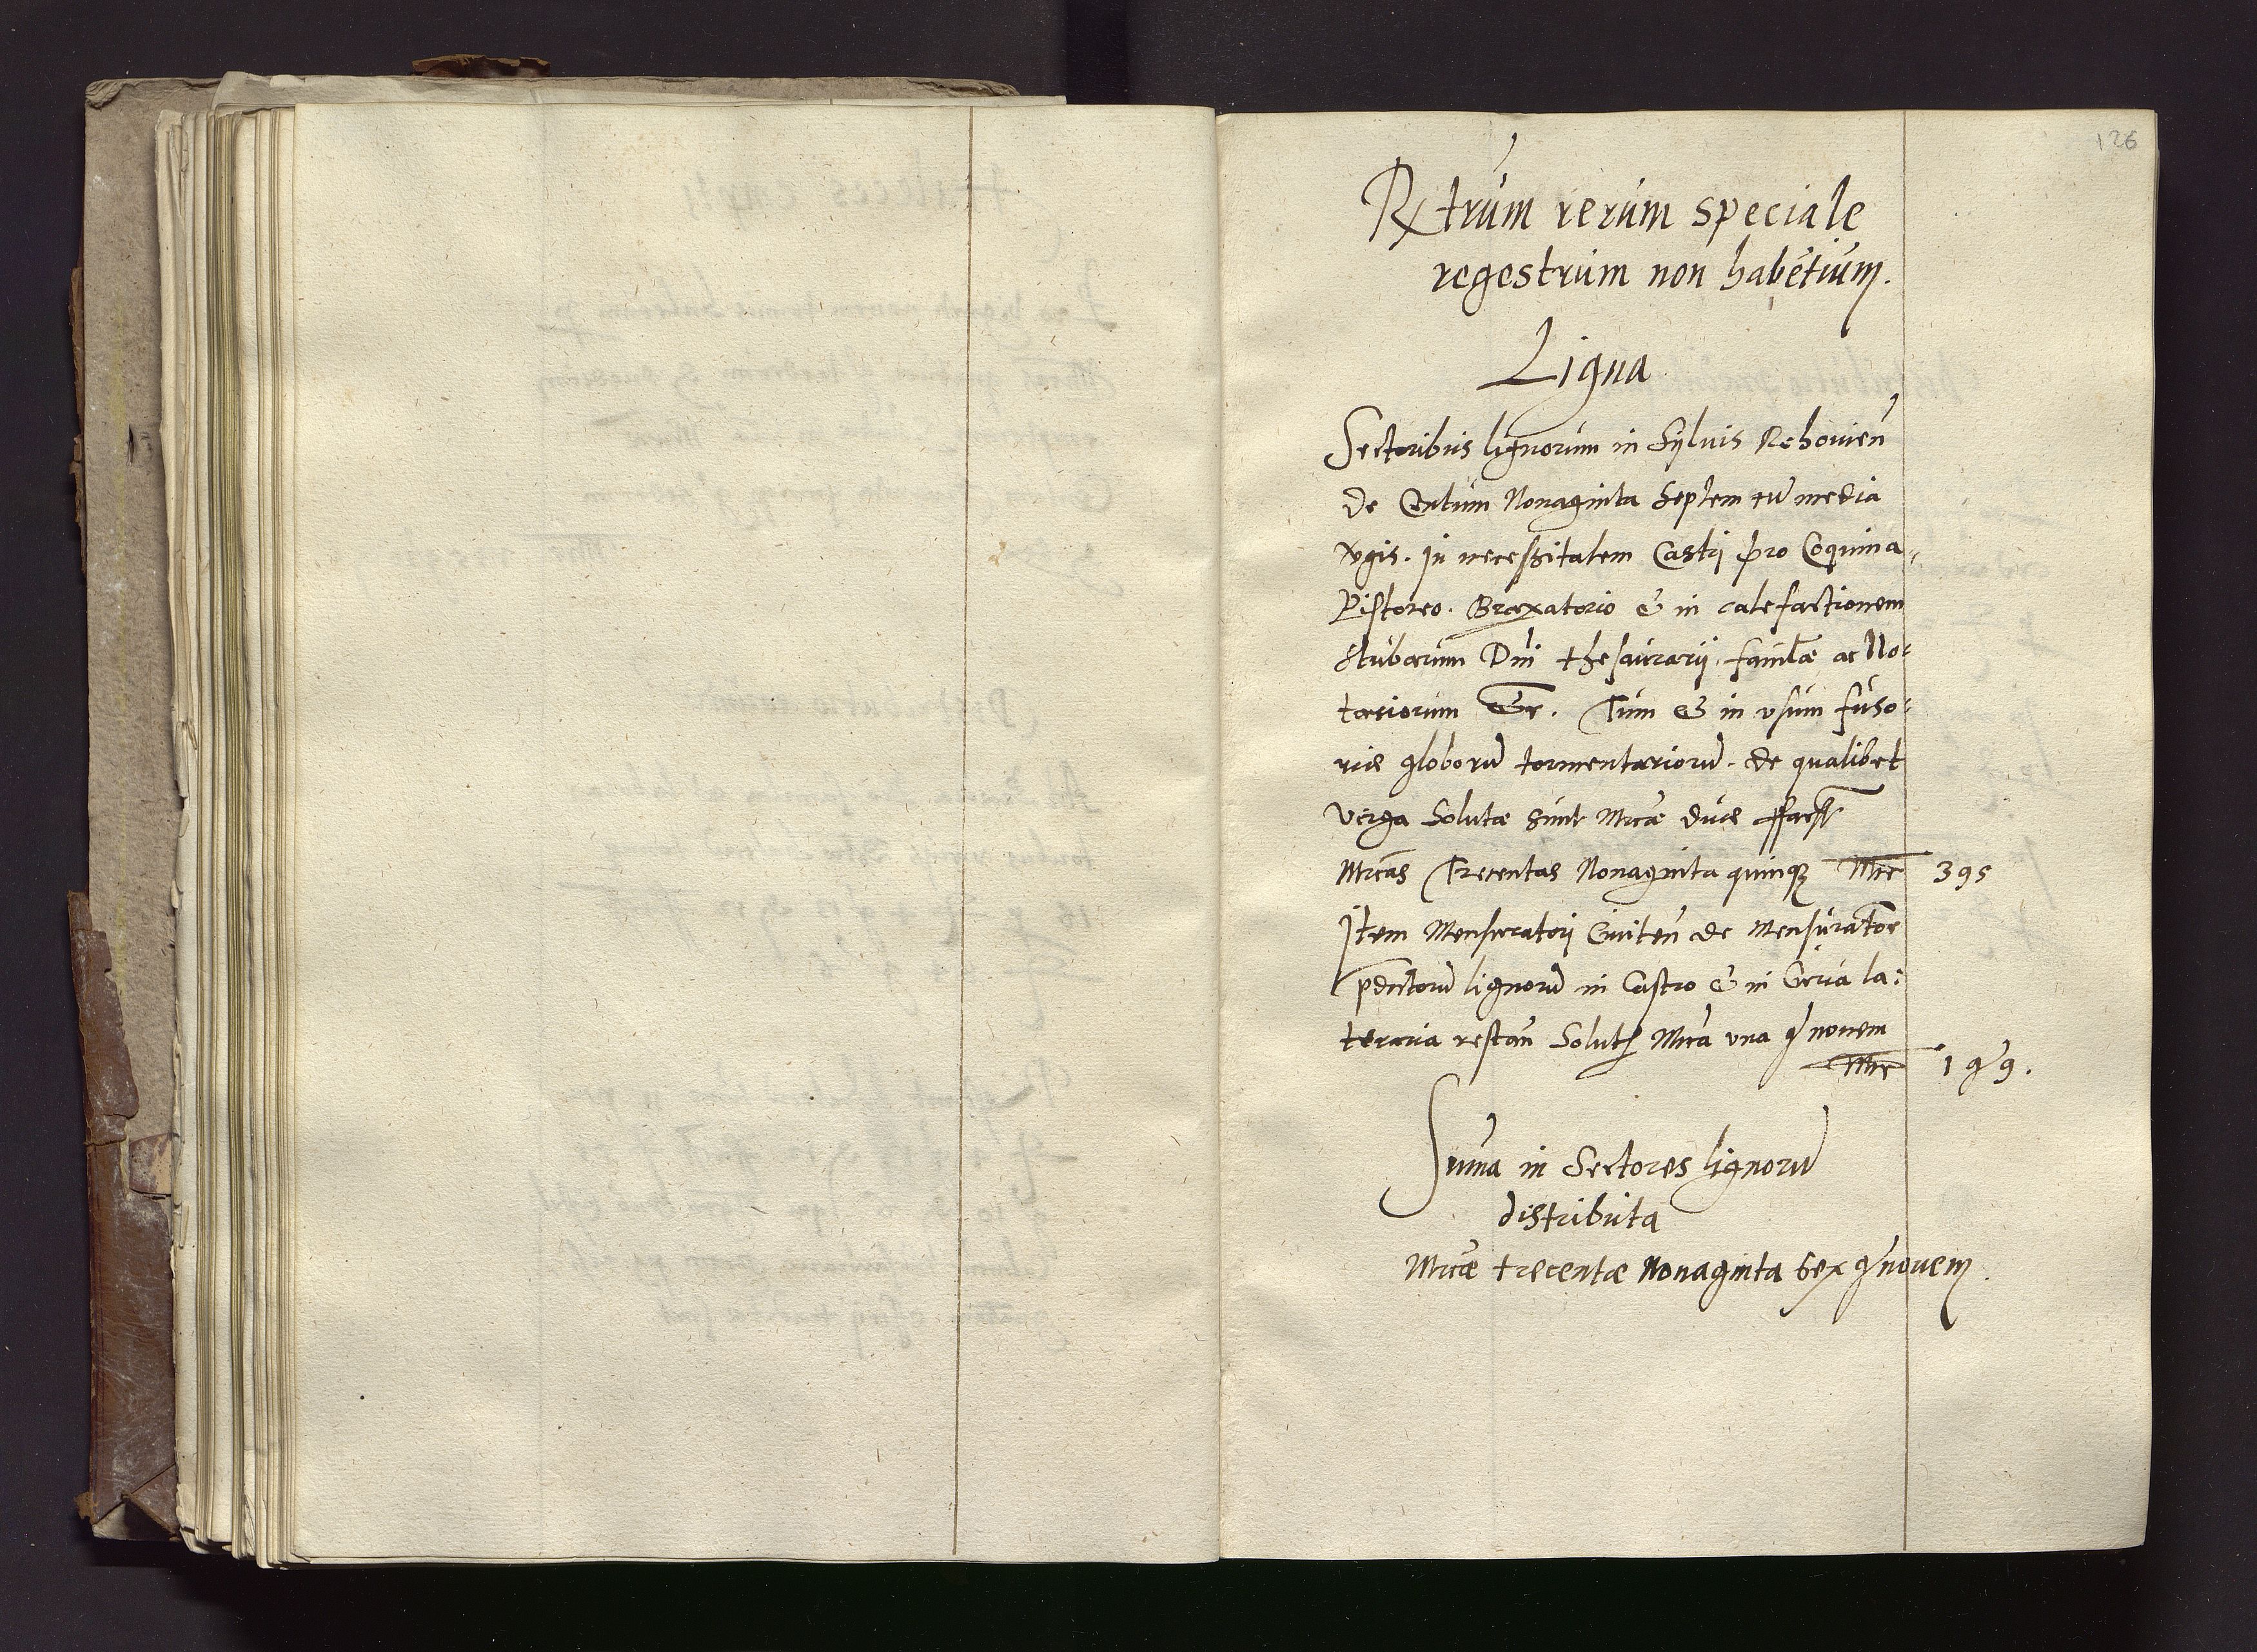 126
Rtrum rerum speciale
regestrum non habētium.
Ligna
Sectoribus lignorum in Sylvis Rehovien̄
de Centum Nonaginta Septem cū media
v̄gis. In necessitatem Castri pro Coquina,
Pistoreo. Braxatorio & in calefactionem
Stubarum Dn̄i thesaurarij. familæ ac No-
tariorum Etc. Tum & in vsum fuso-
riæ globorū tormentariorū. de qualibet
verga Solutæ sunt Mrcæ duæ
Mrcas Trecentas Nonaginta quinqȝ Mrc 395
Item Mensuratori Civiten̄ de Mensuratōe
lignorū in Castro & in la-
teraria restan̄ Solut Mrca vna gr novem
Mrc 1 gr 9.
Suma in Sectores lignorū
distributa
Mrcæ trecentæ Nonaginta sex gr novem.